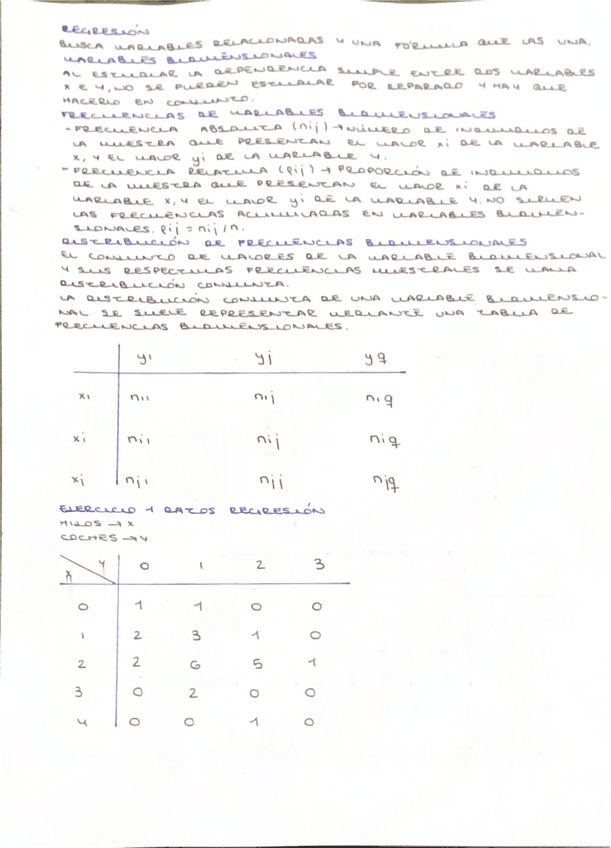 REGRESIÓN
BUSCA VARIABLES RELACIONADAS Y UNA FÓRMULA QUE LAS UNA.
VARIABLES BIDIMENSIONALES
AL ESTUDIAR LA DEPENDENCIA SIMPLE ENTRE DOS VARIABLES
X E Y, NO SE PUEDEN ESTUDIAR POR SEPARADO Y HAY QUE
HACERLO EN CONJUNTO.
FRECUENCIAS DE VARIABLES BIDIMENSIONALES
- FRECUENCIA ABSOLUTA (nij) → NÚMERO DE INDIVIDUOS DE
LA MUESTRA QUE PRESENTAN EL VALOR xi DE LA VARIABLE
X, Y EL VALOR yj DE LA VARIABLE Y.
- FRECUENCIA RELATIVA (fij) → PROPORCIÓN DE INDIVIDUOS
DE LA MUESTRA QUE PRESENTAN EL VALOR xi DE LA
VARIABLE X, Y EL VALOR yj DE LA VARIABLE Y. NO SIRVEN
LAS FRECUENCIAS ACUMULADAS EN VARIABLES BIDIMEN-
SIONALES. fij = nij/n.
DISTRIBUCIÓN DE FRECUENCIAS BIDIMENSIONALES
EL CONJUNTO DE VALORES DE LA VARIABLE BIDIMENSIONAL
Y SUS RESPECTIVAS FRECUENCIAS MUESTRALES SE LLAMA
DISTRIBUCIÓN CONJUNTA.
LA DISTRIBUCIÓN CONJUNTA DE UNA VARIABLE BIDIMENSIO-
NAL SE SUELE REPRESENTAR MEDIANTE UNA TABLA DE
FRECUENCIAS BIDIMENSIONALES.
y1 yj yq
x1 n11 n1j n1q
xi ni1 nij niq
xj nj1 njj njq
EJERCICIO 1 DATOS REGRESIÓN
HIJOS → X
COCHES → Y
X Y 0 1 2 3
0 1 1 0 0
1 2 3 1 0
2 2 6 5 1
3 0 2 0 0
4 0 0 1 0